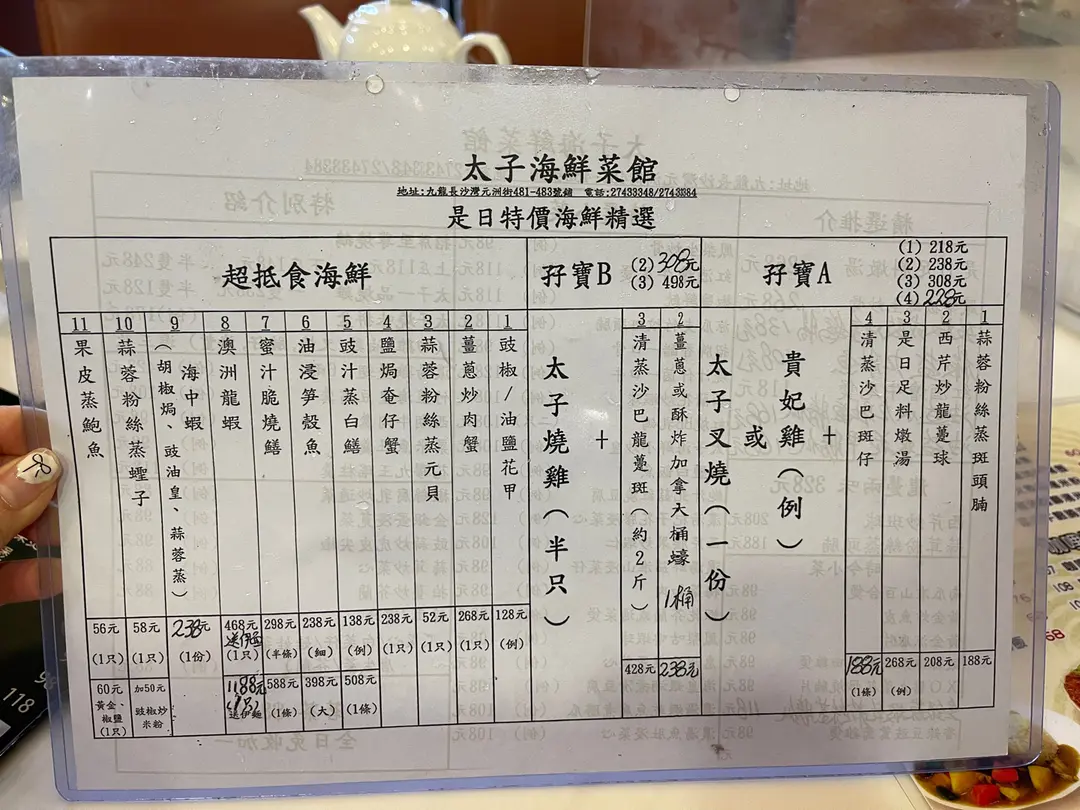 太子海鮮菜館
地址:九龍長沙灣元洲街481-483號鋪 電話:27433348/27433384
是日特價海鮮精選
孖寶A
(1) 218元
(2) 238元
(3) 308元
(4) 228元
1 蒜蓉粉絲蒸斑頭腩 188元
2 西芹炒龍躉球 208元
3 是日足料燉湯 268元 (例)
4 清蒸沙巴斑仔 188元 (1條)
+
貴妃雞(例)
或
太子叉燒(一份)
孖寶B
(2) 308元
(3) 498元
2 薑蔥或酥炸加拿大桶蠔 1桶 238元
3 清蒸沙巴龍躉斑(約2斤) 428元
+
太子燒雞(半只)
超抵食海鮮
1 豉椒/油鹽花甲 128元 (例)
2 薑蔥炒肉蟹 268元 (1只)
3 蒜蓉粉絲蒸元貝 52元 (1只)
4 鹽焗奄仔蟹 238元 (1只)
5 豉汁蒸白鱔 138元 (例) 508元 (1條)
6 油浸笋殼魚 238元 (細) 398元 (大)
7 蜜汁脆燒鱔 298元 (半條) 588元 (1條)
8 澳洲龍蝦 468元 (1只) 1188元 送伊麵
9 海中蝦 (胡椒焗、豉油皇、蒜蓉蒸) 238元 (1份)
10 蒜蓉粉絲蒸蟶子 58元 (1只) 加50元 豉椒炒米粉
11 果皮蒸鮑魚 56元 (1只) 60元 黃金、椒鹽 (1只)
118